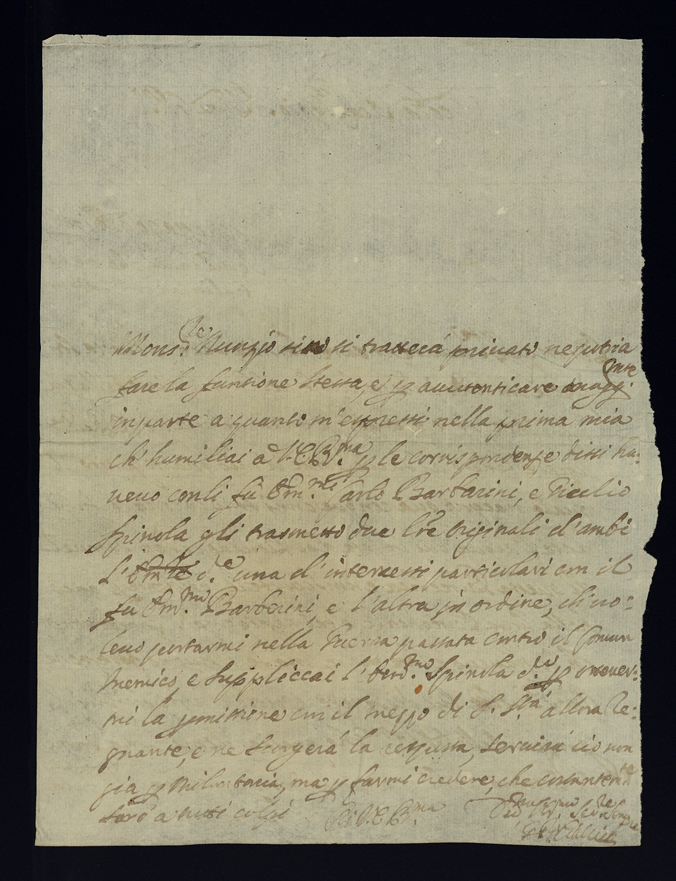 Mons.re Nunzio si trattera privato ne potria
fare la funtione stessa, e p autenticare magg.nte
in parte a quanto m'espressi nella prima mia
ch' humiliai à V.E.R.ma p le corrispondenze dissi ha-
vevo con li fù Em.mi Carlo Barberini, e Giulio
Spinola gli trasmetto due lre originali d'ambi
una d' interessi particolari con il
fu Em.mo Barberini, e l'altra in ordine, ch' vo-
levo portarmi nella guerra passata contro il Comun
Inemico, e suppliccai l' Em.mo Spinola p ottener-
mi la permissione con il mezzo di S. S.tà allora Re-
gnante, e ne scorgerà la risposta, servirà ciò non
già p millantaria, ma p farmi credere, che costante
sarò a tutti colpi Di V.E.R.ma